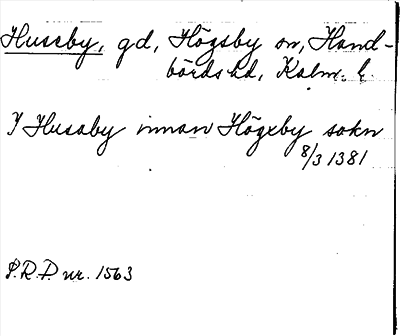 Huseby, gd, Högsby sn, Hand-
börds hd, Kalm. l.
I Husaby innan Högxby sokn
8/3 1381
S.R.P. nr. 1563